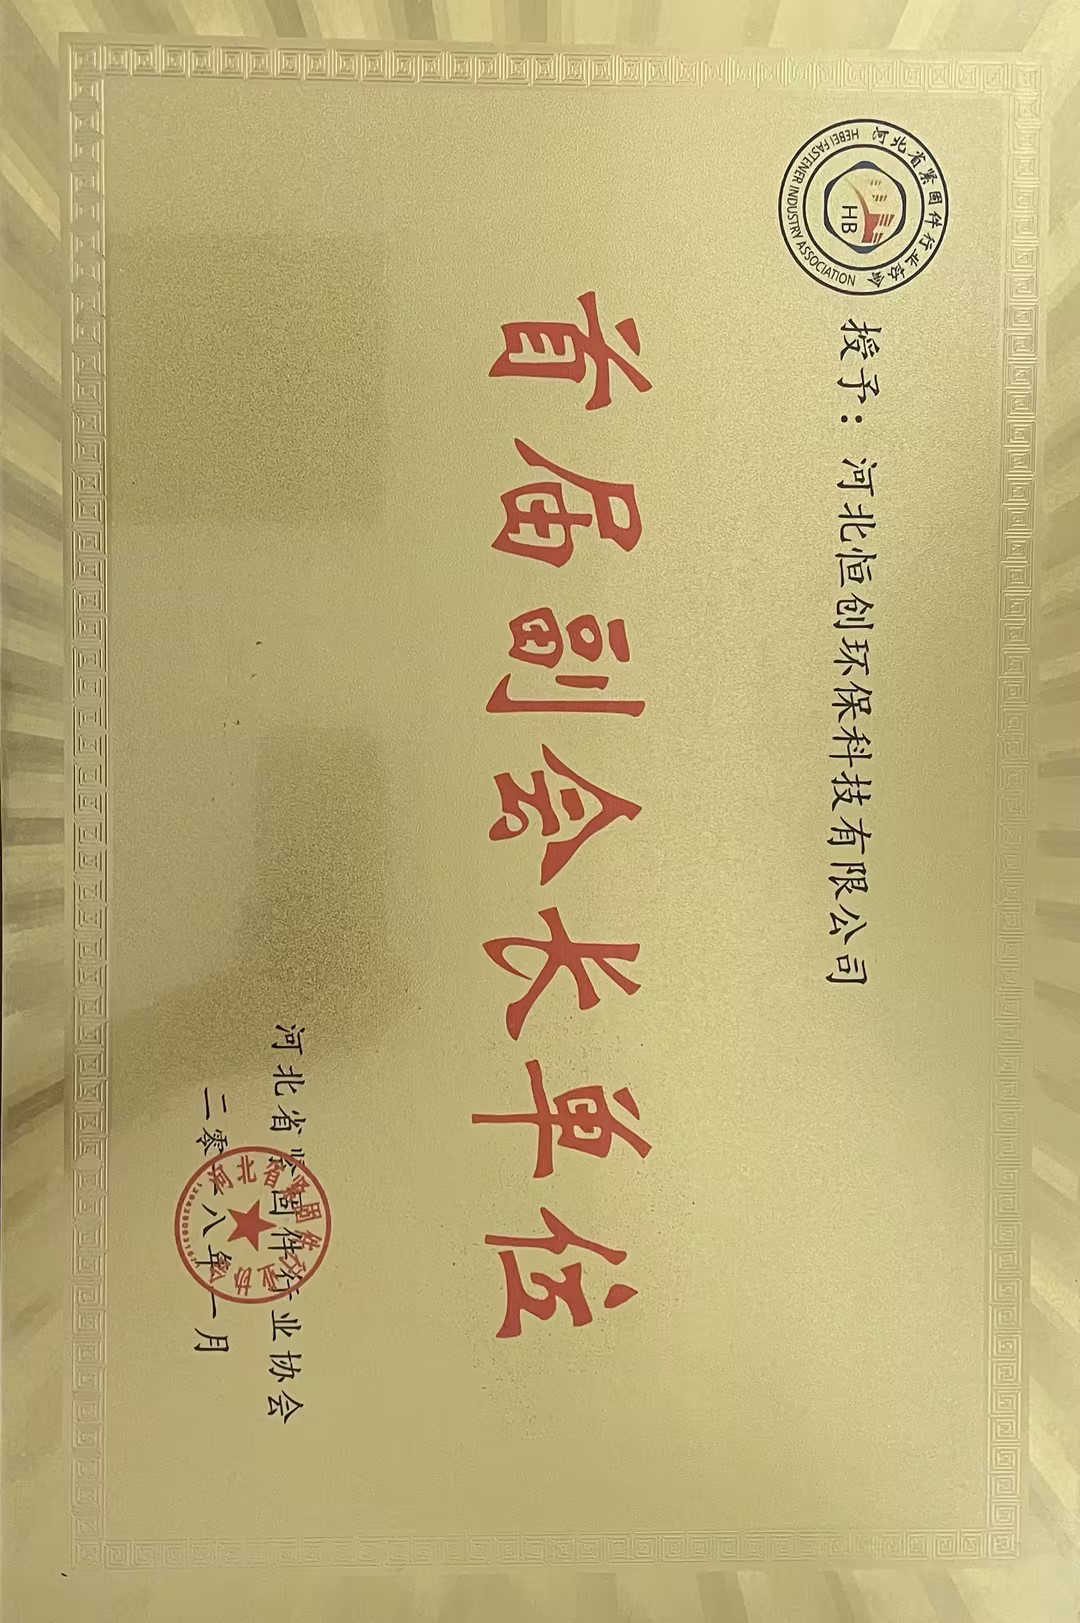 河北省紧固件行业协会
HEBEI FASTENER INDUSTRY ASSOCIATION
HB
授予：河北恒创环保科技有限公司
首届副会长单位
河北省紧固件行业协会
二零一八年一月